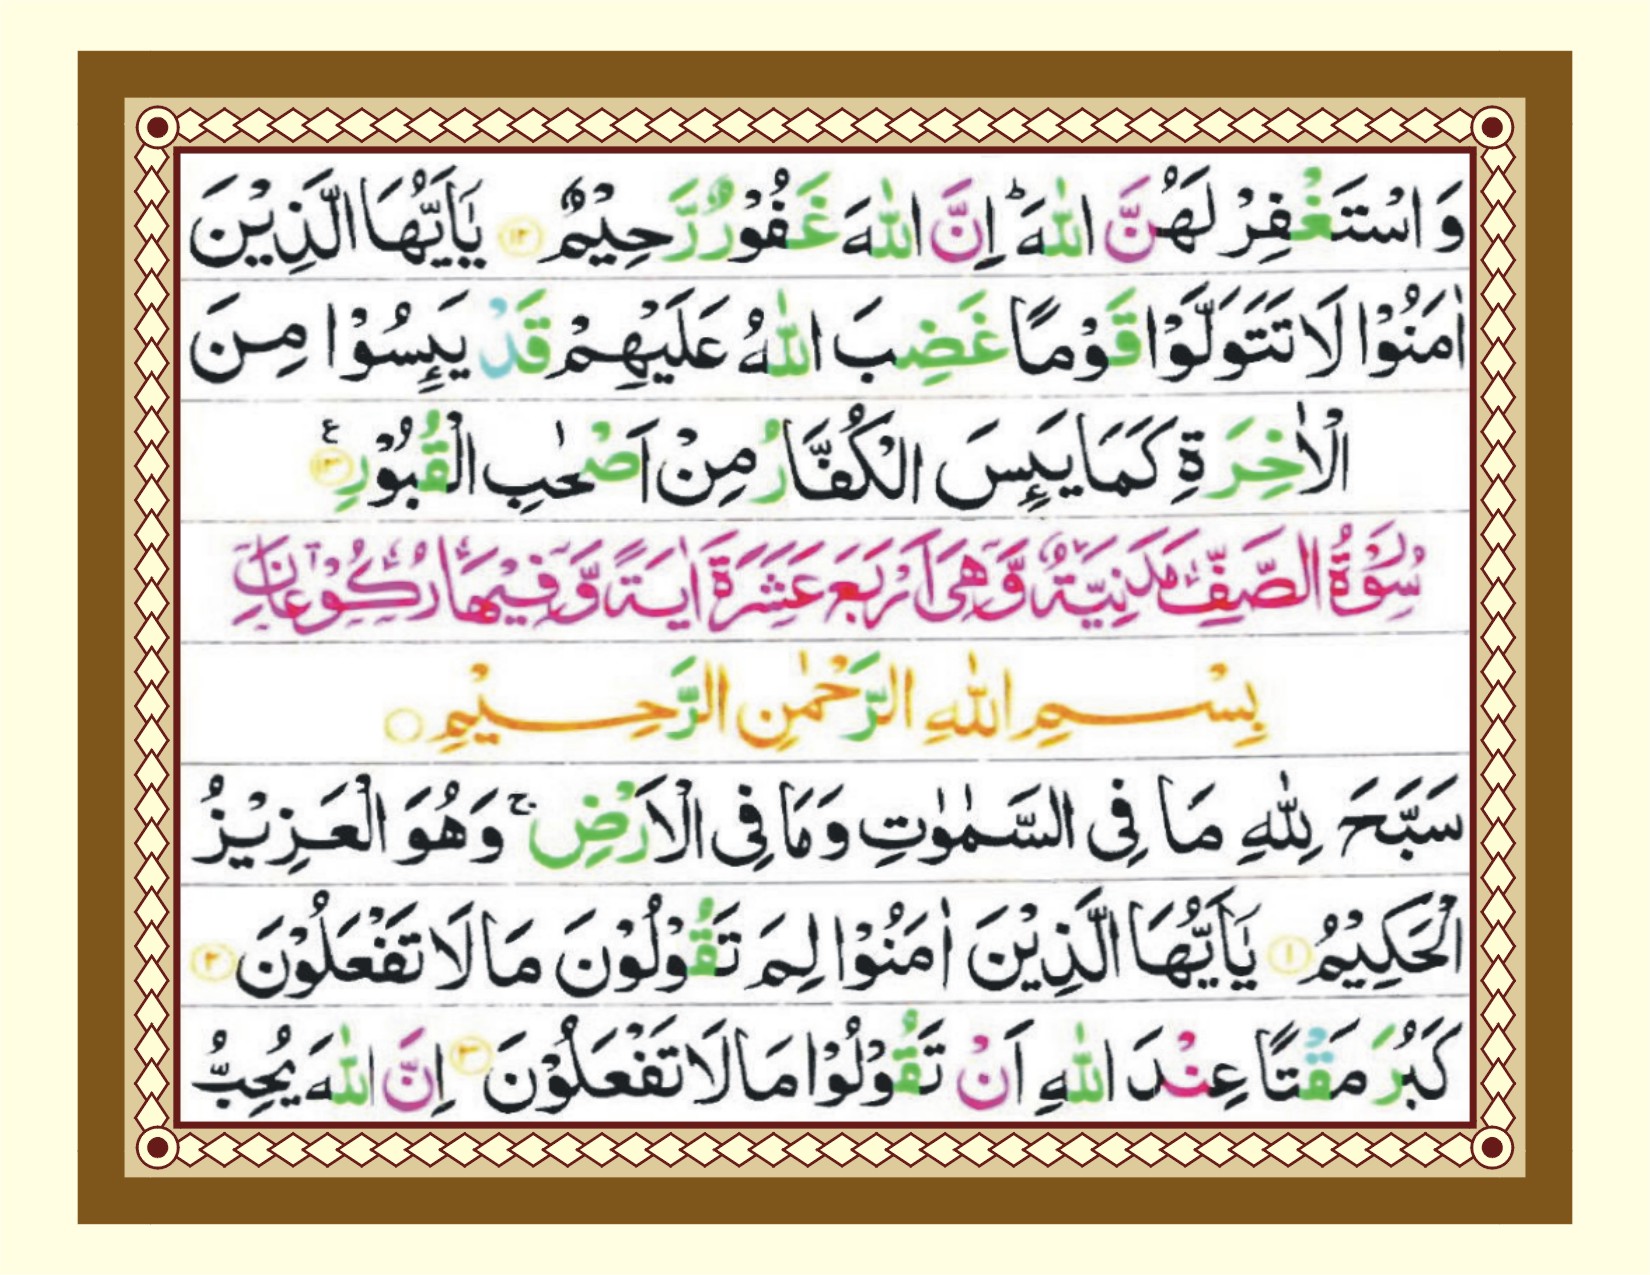 وَاسْتَغْفِرْ لَهُنَّ اللّٰهَ ؕ اِنَّ اللّٰهَ غَفُوْرٌ رَّحِيْمٌ ۝۱۲ يٰۤاَيُّهَا الَّذِيْنَ
اٰمَنُوْا لَا تَتَوَلَّوْا قَوْمًا غَضِبَ اللّٰهُ عَلَيْهِمْ قَدْ يَىِٕسُوْا مِنَ
الْاٰخِرَةِ كَمَا يَىِٕسَ الْكُفَّارُ مِنْ اَصْحٰبِ الْقُبُوْرِ ۝۱۳ ع
سُوْرَةُ الصَّفِّ مَدَنِيَّةٌ وَّهِىَ اَرْبَعَ عَشَرَةَ اٰيَةً وَّفِيْهَا رُكُوْعَانِ
بِسْمِ اللّٰهِ الرَّحْمٰنِ الرَّحِيْمِ ۝
سَبَّحَ لِلّٰهِ مَا فِى السَّمٰوٰتِ وَمَا فِى الْاَرْضِ ۚ وَهُوَ الْعَزِيْزُ
الْحَكِيْمُ ۝۱ يٰۤاَيُّهَا الَّذِيْنَ اٰمَنُوْا لِمَ تَقُوْلُوْنَ مَا لَا تَفْعَلُوْنَ ۝۲
كَبُرَ مَقْتًا عِنْدَ اللّٰهِ اَنْ تَقُوْلُوْا مَا لَا تَفْعَلُوْنَ ۝۳ اِنَّ اللّٰهَ يُحِبُّ